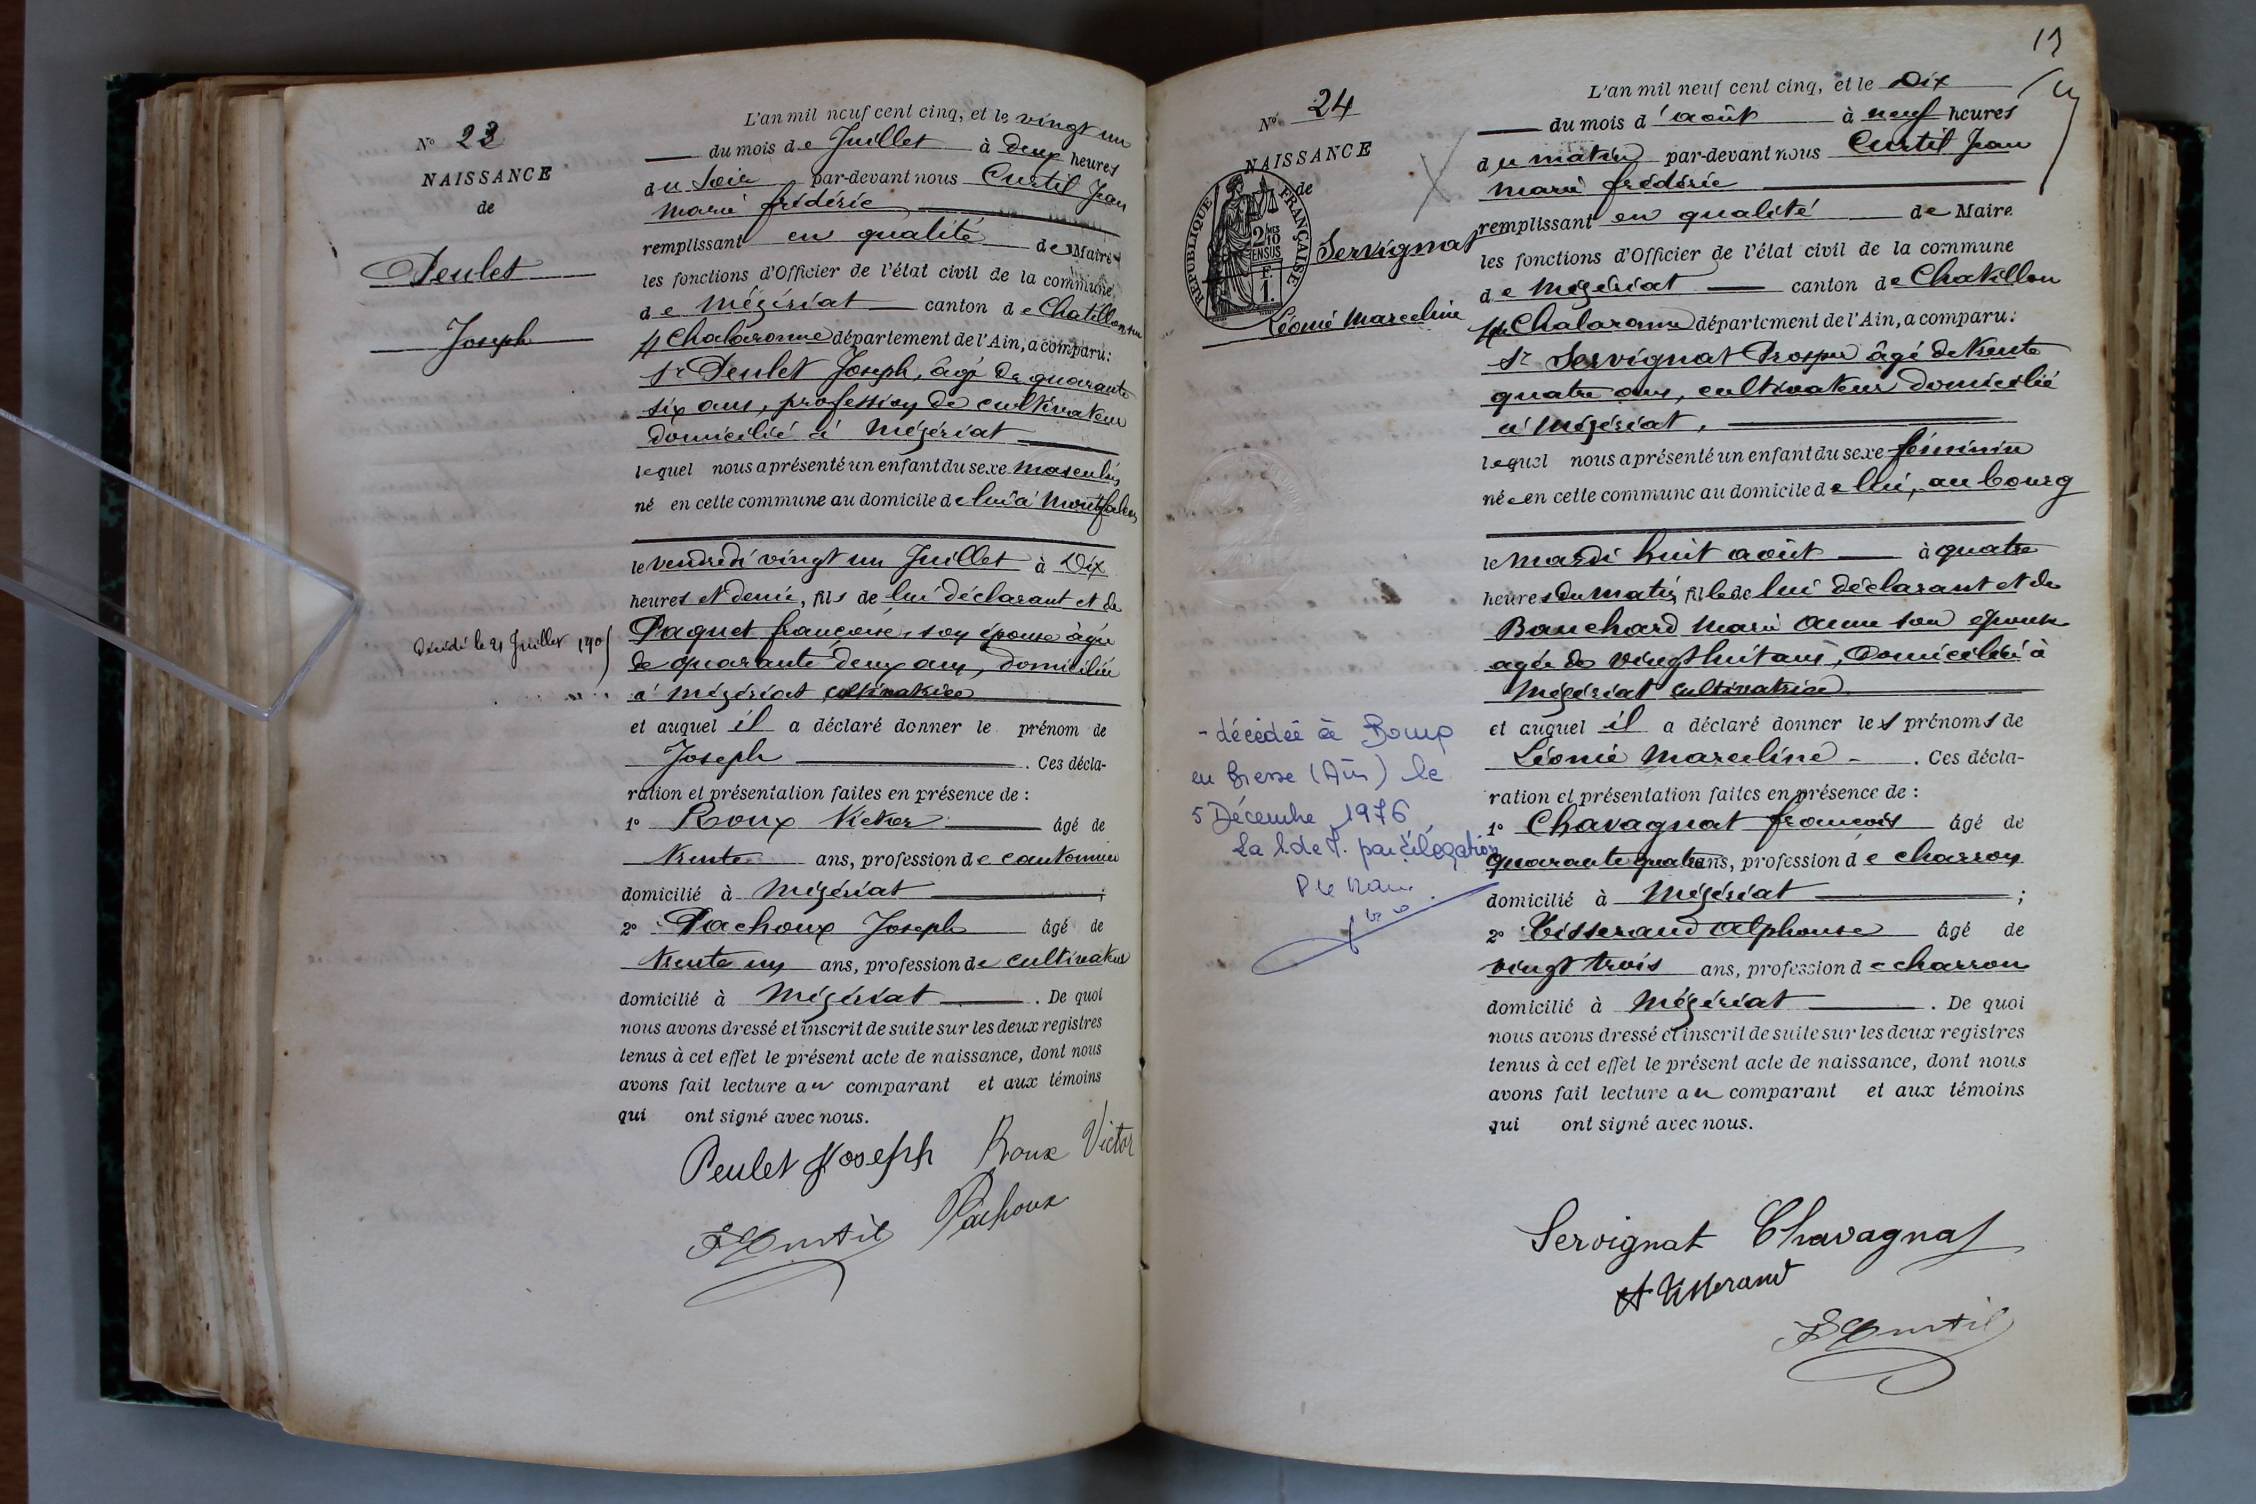 N° 23
NAISSANCE
de
Peulet
Joseph
Décédé le 21 Juillet 1905
L'an mil neuf cent cinq, et le vingt un
du mois de Juillet à deux heures
du soir par-devant nous Curtil Jean
marie frédéric
remplissant en qualité de Maire
les fonctions d'Officier de l'état civil de la commune
de Mézériat canton de Chatillon sur
Chalaronne département de l'Ain, a comparu:
Sr Peulet Joseph, âgé de quarante
six ans, profession de cultivateur
domicilié à Mézériat
lequel nous a présenté un enfant du sexe masculin
né en cette commune au domicile de lui à Montfalcon
le vendredi vingt un Juillet à Dix
heures et demie, fils de lui déclarant et de
Paquet françoise, son épouse âgée
de quarante deux ans, domiciliée
à Mézériat cultivatrice
et auquel il a déclaré donner le prénom de
Joseph. Ces décla-
ration et présentation faites en présence de :
1° Roux Victor âgé de
trente ans, profession de cantonnier
domicilié à Mézériat ;
2° Pachoux Joseph âgé de
trente un ans, profession de cultivateur
domicilié à Mézériat. De quoi
nous avons dressé et inscrit de suite sur les deux registres
tenus à cet effet le présent acte de naissance, dont nous
avons fait lecture au comparant et aux témoins
qui ont signé avec nous.
Peulet Joseph Roux Victor
Curtil Pachoux
13
N° 24
NAISSANCE
de
RÉPUBLIQUE FRANÇAISE
2/10 EN SUS
F.
1.
Servignat
Léonie Marceline
- décédée à Bourg
en Bresse (Ain) le
5 Décembre 1976
par délégation
L'an mil neuf cent cinq, et le Dix
du mois d'août à neuf heures
du matin par-devant nous Curtil Jean
marie frédéric
remplissant en qualité de Maire
les fonctions d'Officier de l'état civil de la commune
de Mézériat canton de Chatillon
Chalaronne département de l'Ain, a comparu:
Sr Servignat Prosper âgé de trente
quatre ans, cultivateur domicilié
à Mézériat,
lequel nous a présenté un enfant du sexe féminin
née en cette commune au domicile de lui, au bourg
le mardi huit août à quatre
heures du matin, fille de lui déclarant et de
Banchard Marie Anne son épouse
agée de vingt huit ans, Domiciliée à
Mézériat cultivatrice
et auquel il a déclaré donner les prénoms de
Léonie Marceline. Ces décla-
ration et présentation faites en présence de :
1° Chavagnat françois âgé de
quarante quatre ans, profession de charron
domicilié à Mézériat ;
2° Tisserand Alphonse âgé de
vingt trois ans, profession de charron
domicilié à Mézériat. De quoi
nous avons dressé et inscrit de suite sur les deux registres
tenus à cet effet le présent acte de naissance, dont nous
avons fait lecture au comparant et aux témoins
qui ont signé avec nous.
Servignat Chavagnat
A Tisserand
Curtil